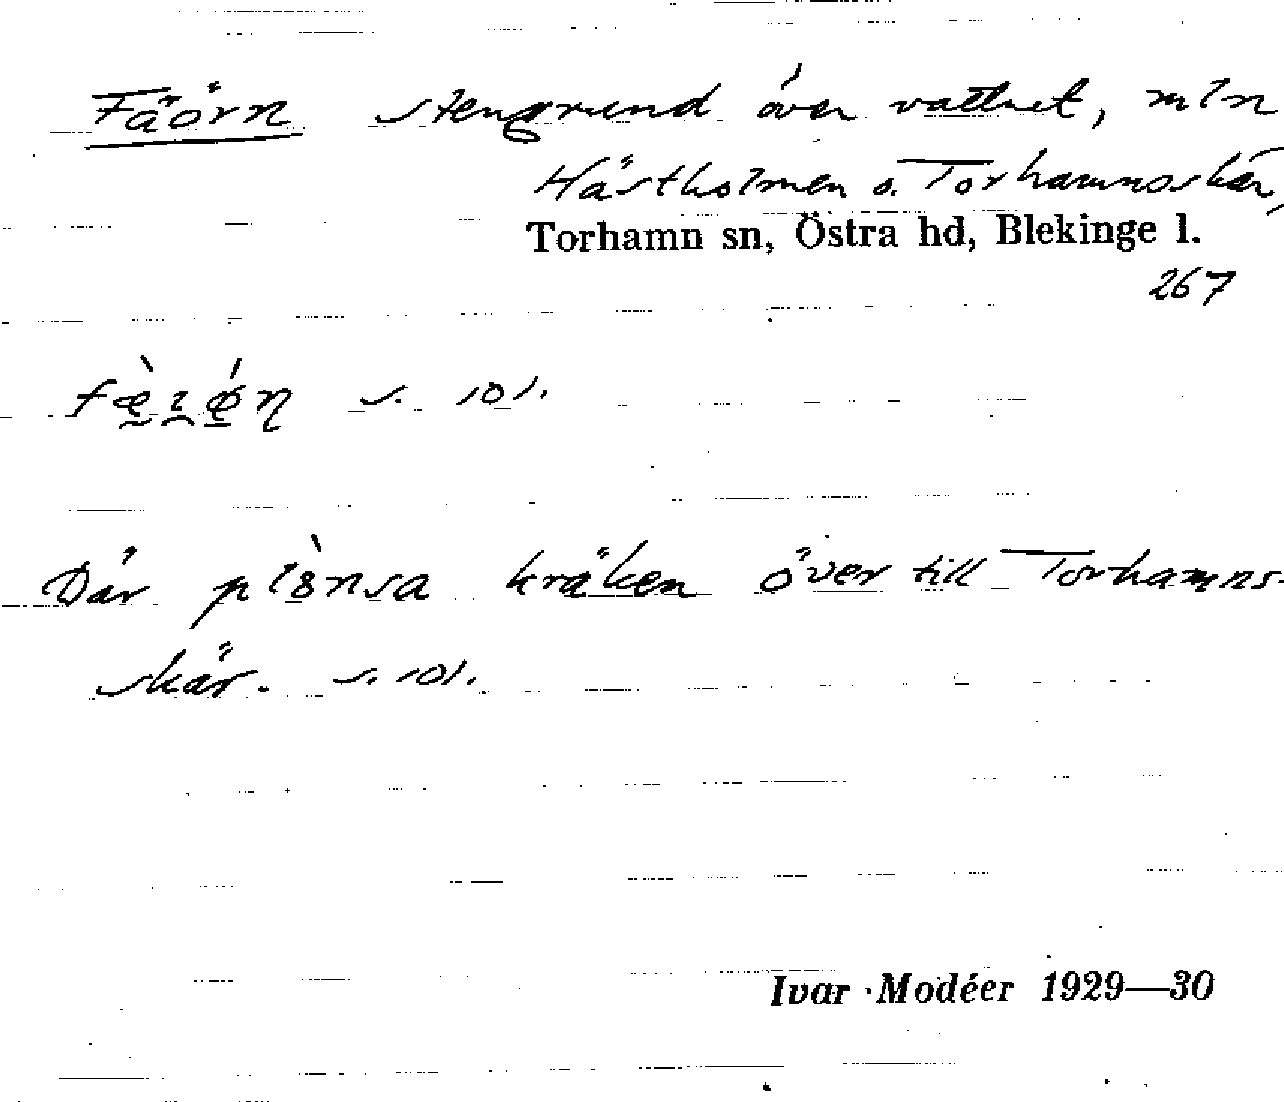 Fäörn stengrund över vattnet, mln
Hästholmen o. Torhamnsskär,
Torhamn sn, Östra hd, Blekinge l.
267
s. 101.
Där plònsa kräken över till Torhamns-
skär. s. 101.
Ivar Modéer 1929—30